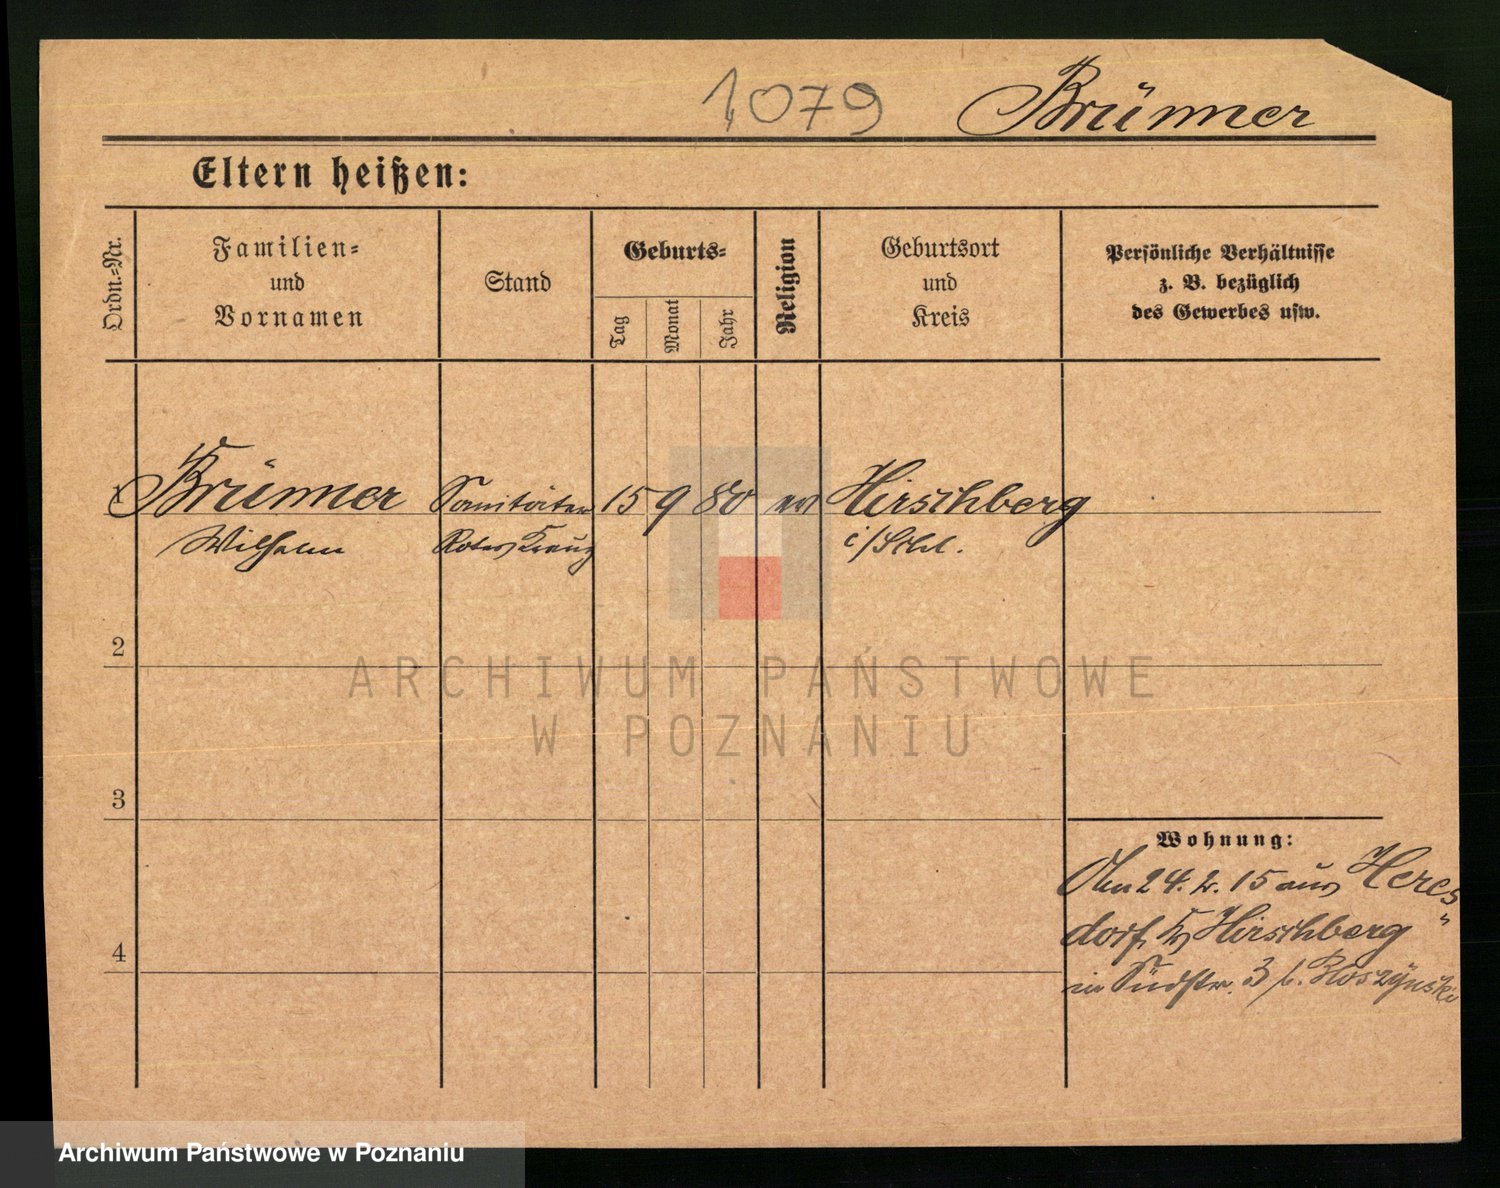 1079 Brünner
Eltern heißen:
Ordn.-Nr.
Familien-
und
Vornamen
Stand
Geburts-
Tag
Monat
Jahr
Religion
Geburtsort
und
Kreis
Persönliche Verhältnisse
z. B. bezüglich
des Gewerbes usw.
1 Brünner Sanitäter 15 9 80 ev Hirschberg
Wilhelm Rotes Kreuz i/Schl.
2
3
4
Wohnung:
24. 2. 15 aus Heres
dorf, Kr Hirschberg
in Südstr. 3 b. Roszynski
ARCHIWUM PAŃSTWOWE
W POZNANIU
Archiwum Państwowe w Poznaniu